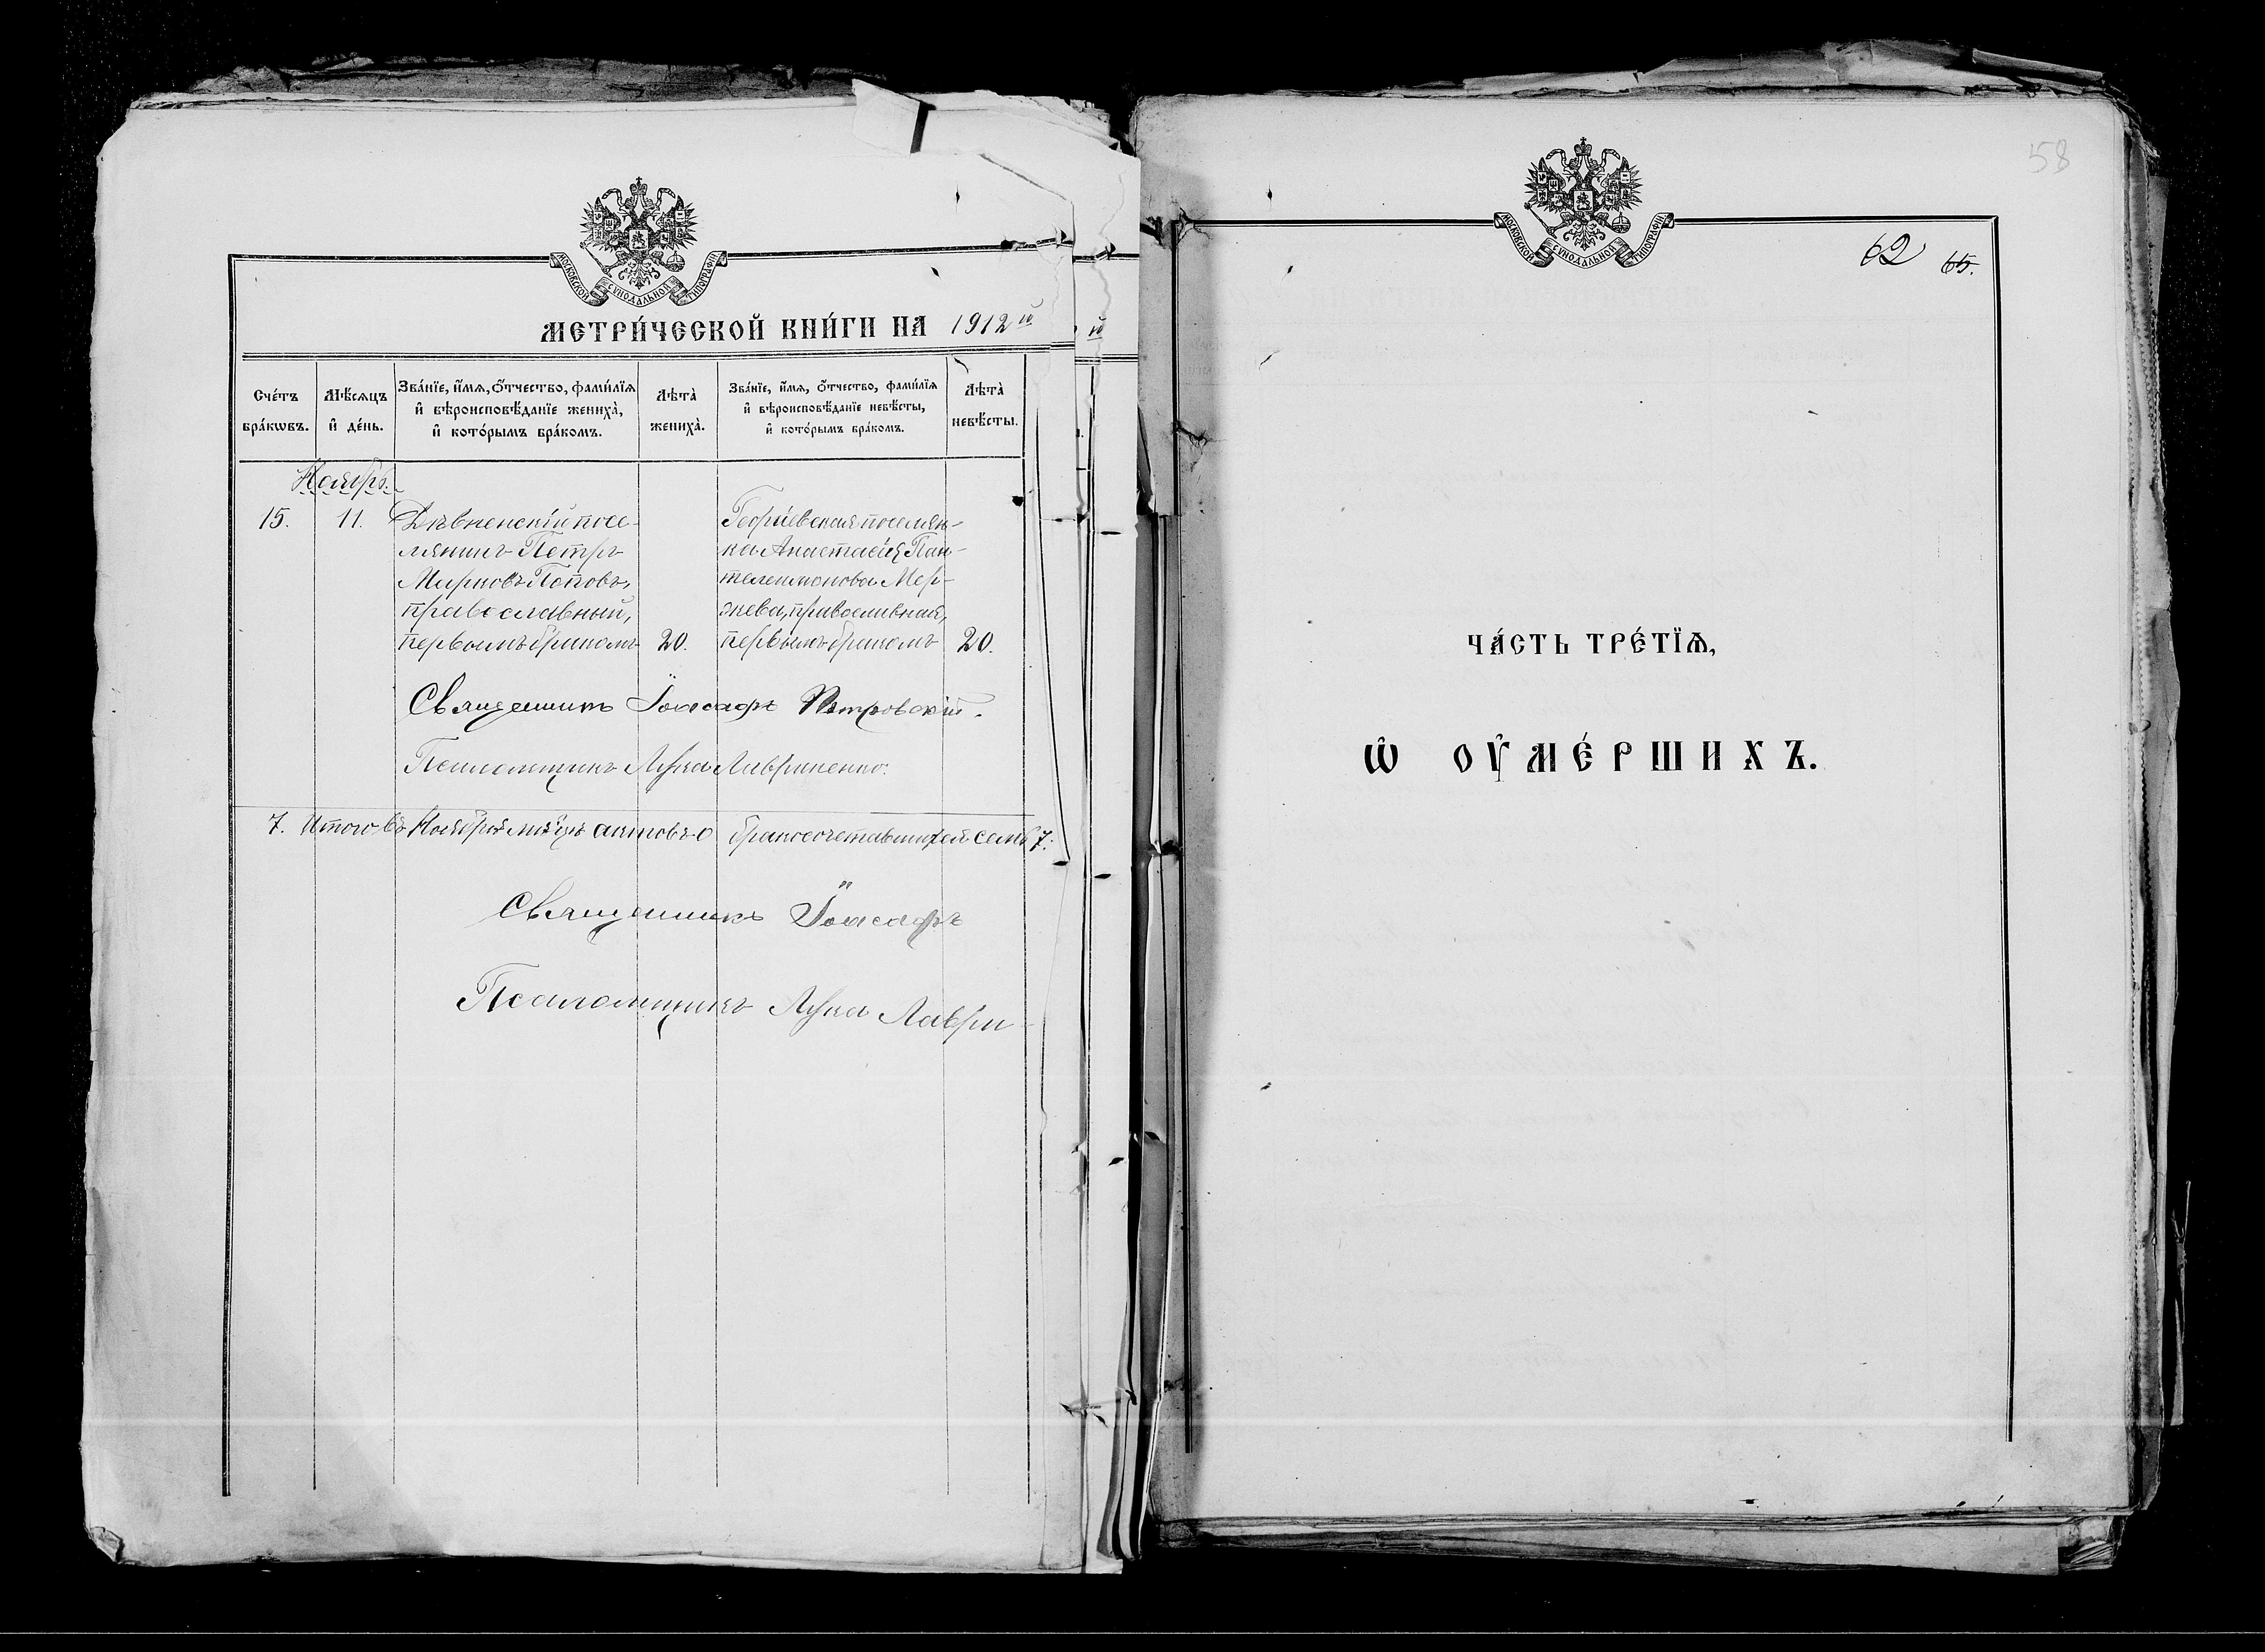 МОСКОВСКОЙ СУНОДАЛЬНОЙ ТИПОГРАФІИ
МЕТРИ́ЧЕСКОЙ КНИ́ГИ НА 1912 й
Сче́тъ бра́кѡвъ.
Мѣ́сѧцъ и҆ де́нь.
Зва́нїе, и҆́мѧ, ѻ҆́тчество, фами́лїѧ
и҆ вѣроисповѣ́данїе жениха̀,
и҆ кото́рымъ бра́комъ.
Лѣта̀ жениха̀.
Зва́нїе, и҆́мѧ, ѻ҆́тчество, фами́лїѧ
и҆ вѣроисповѣ́данїе невѣ́сты,
и҆ кото́рымъ бра́комъ.
Лѣта̀ невѣ́сты.
Ноябрь.
15.
11.
Дивненскій посе-
лянинъ Петръ
Мирковъ Поповъ,
православный,
первымъ бракомъ
20.
Георгіевская поселян-
ка Анастасія Пан-
телеимонова Мер-
жева, православная,
первымъ бракомъ
20.
Священникъ Іоасафъ Петровскій.
Псаломщикъ Лука Лавриненко.
7. Итого въ Ноябрѣ мѣсяцѣ актовъ о бракосочетавшихся семь 7.
Священникъ Іоасафъ
Псаломщикъ Лука Лаври-
58
МОСКОВСКОЙ СУНОДАЛЬНОЙ ТИПОГРАФІИ
62 65.
ЧА́СТЬ ТРЕ́ТЇѦ,
Ѡ҆ ОУ҆МЕ́РШИХЪ.